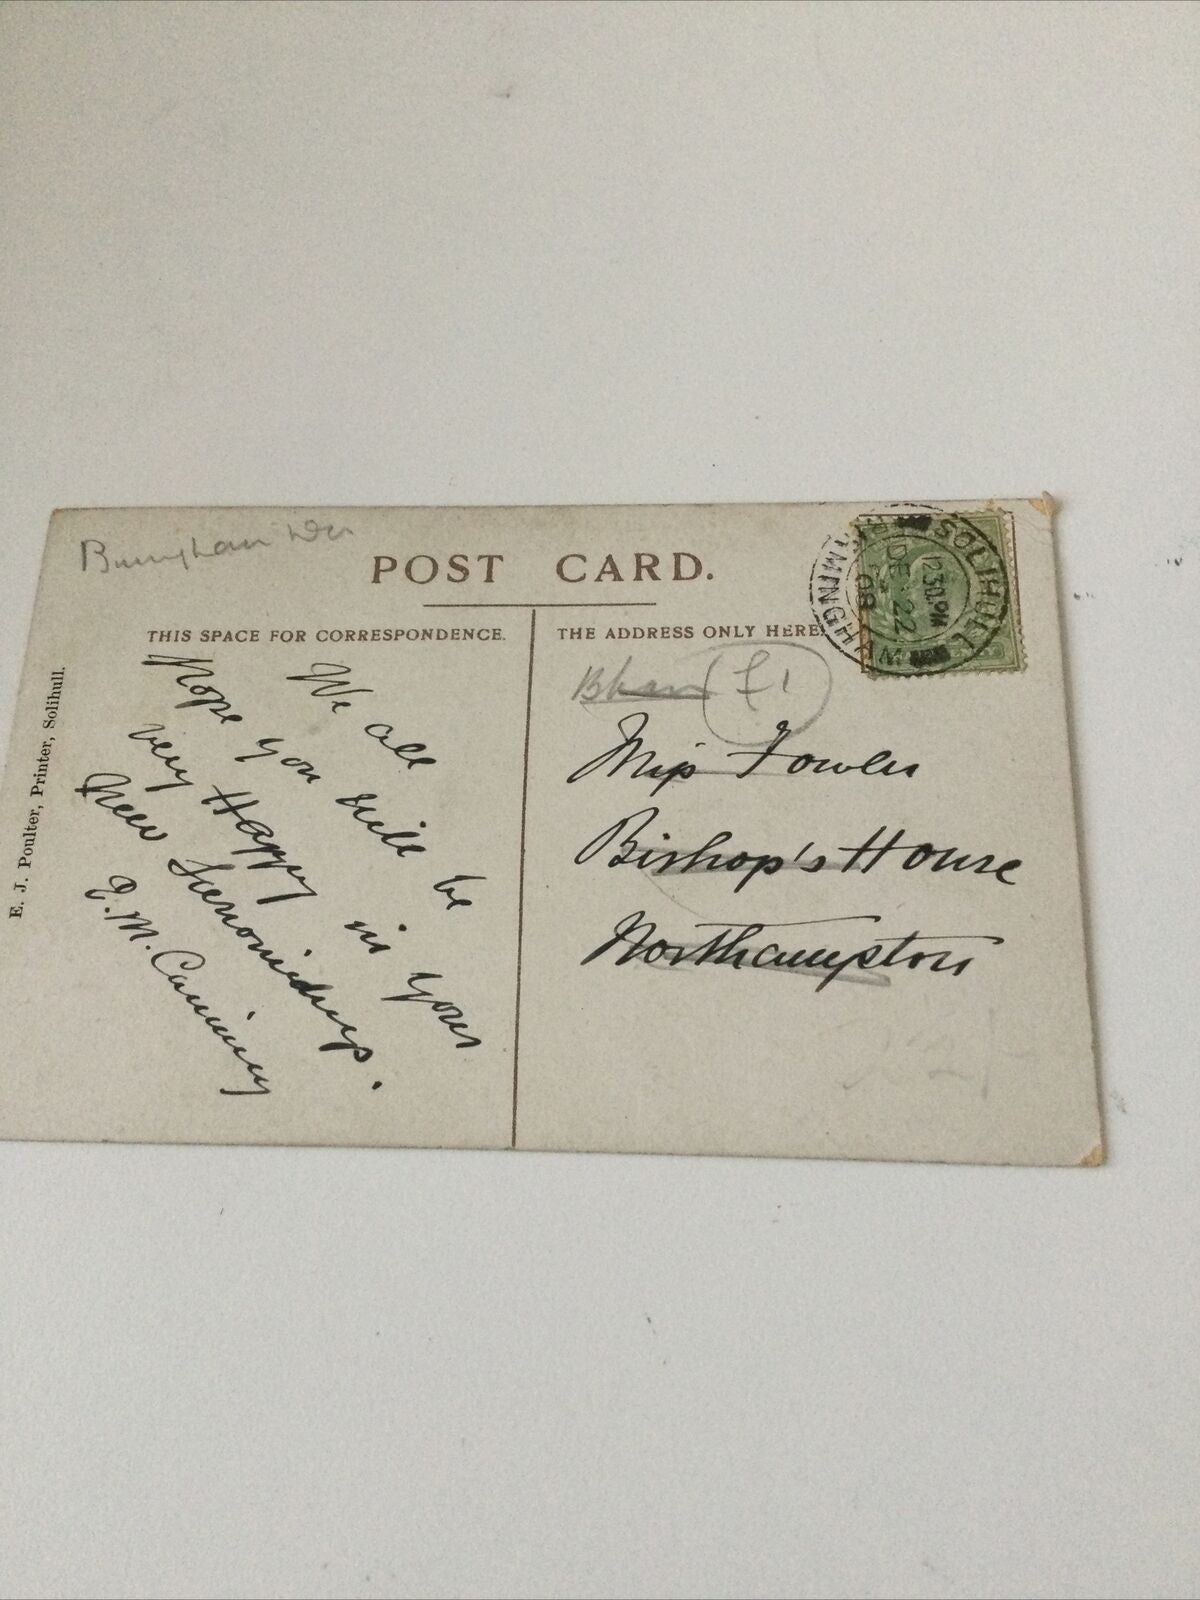 POST CARD.
THIS SPACE FOR CORRESPONDENCE.
We all
Hope you will be
very Happy in your
New
E. M. Canning
E. J. Poulter, Printer, Solihull.
THE ADDRESS ONLY HERE.
B'ham £1
Miss Fowler
Bishop's House
Northampton
SOLIHULL
BIRMINGHAM
12.30PM
DE 22
08